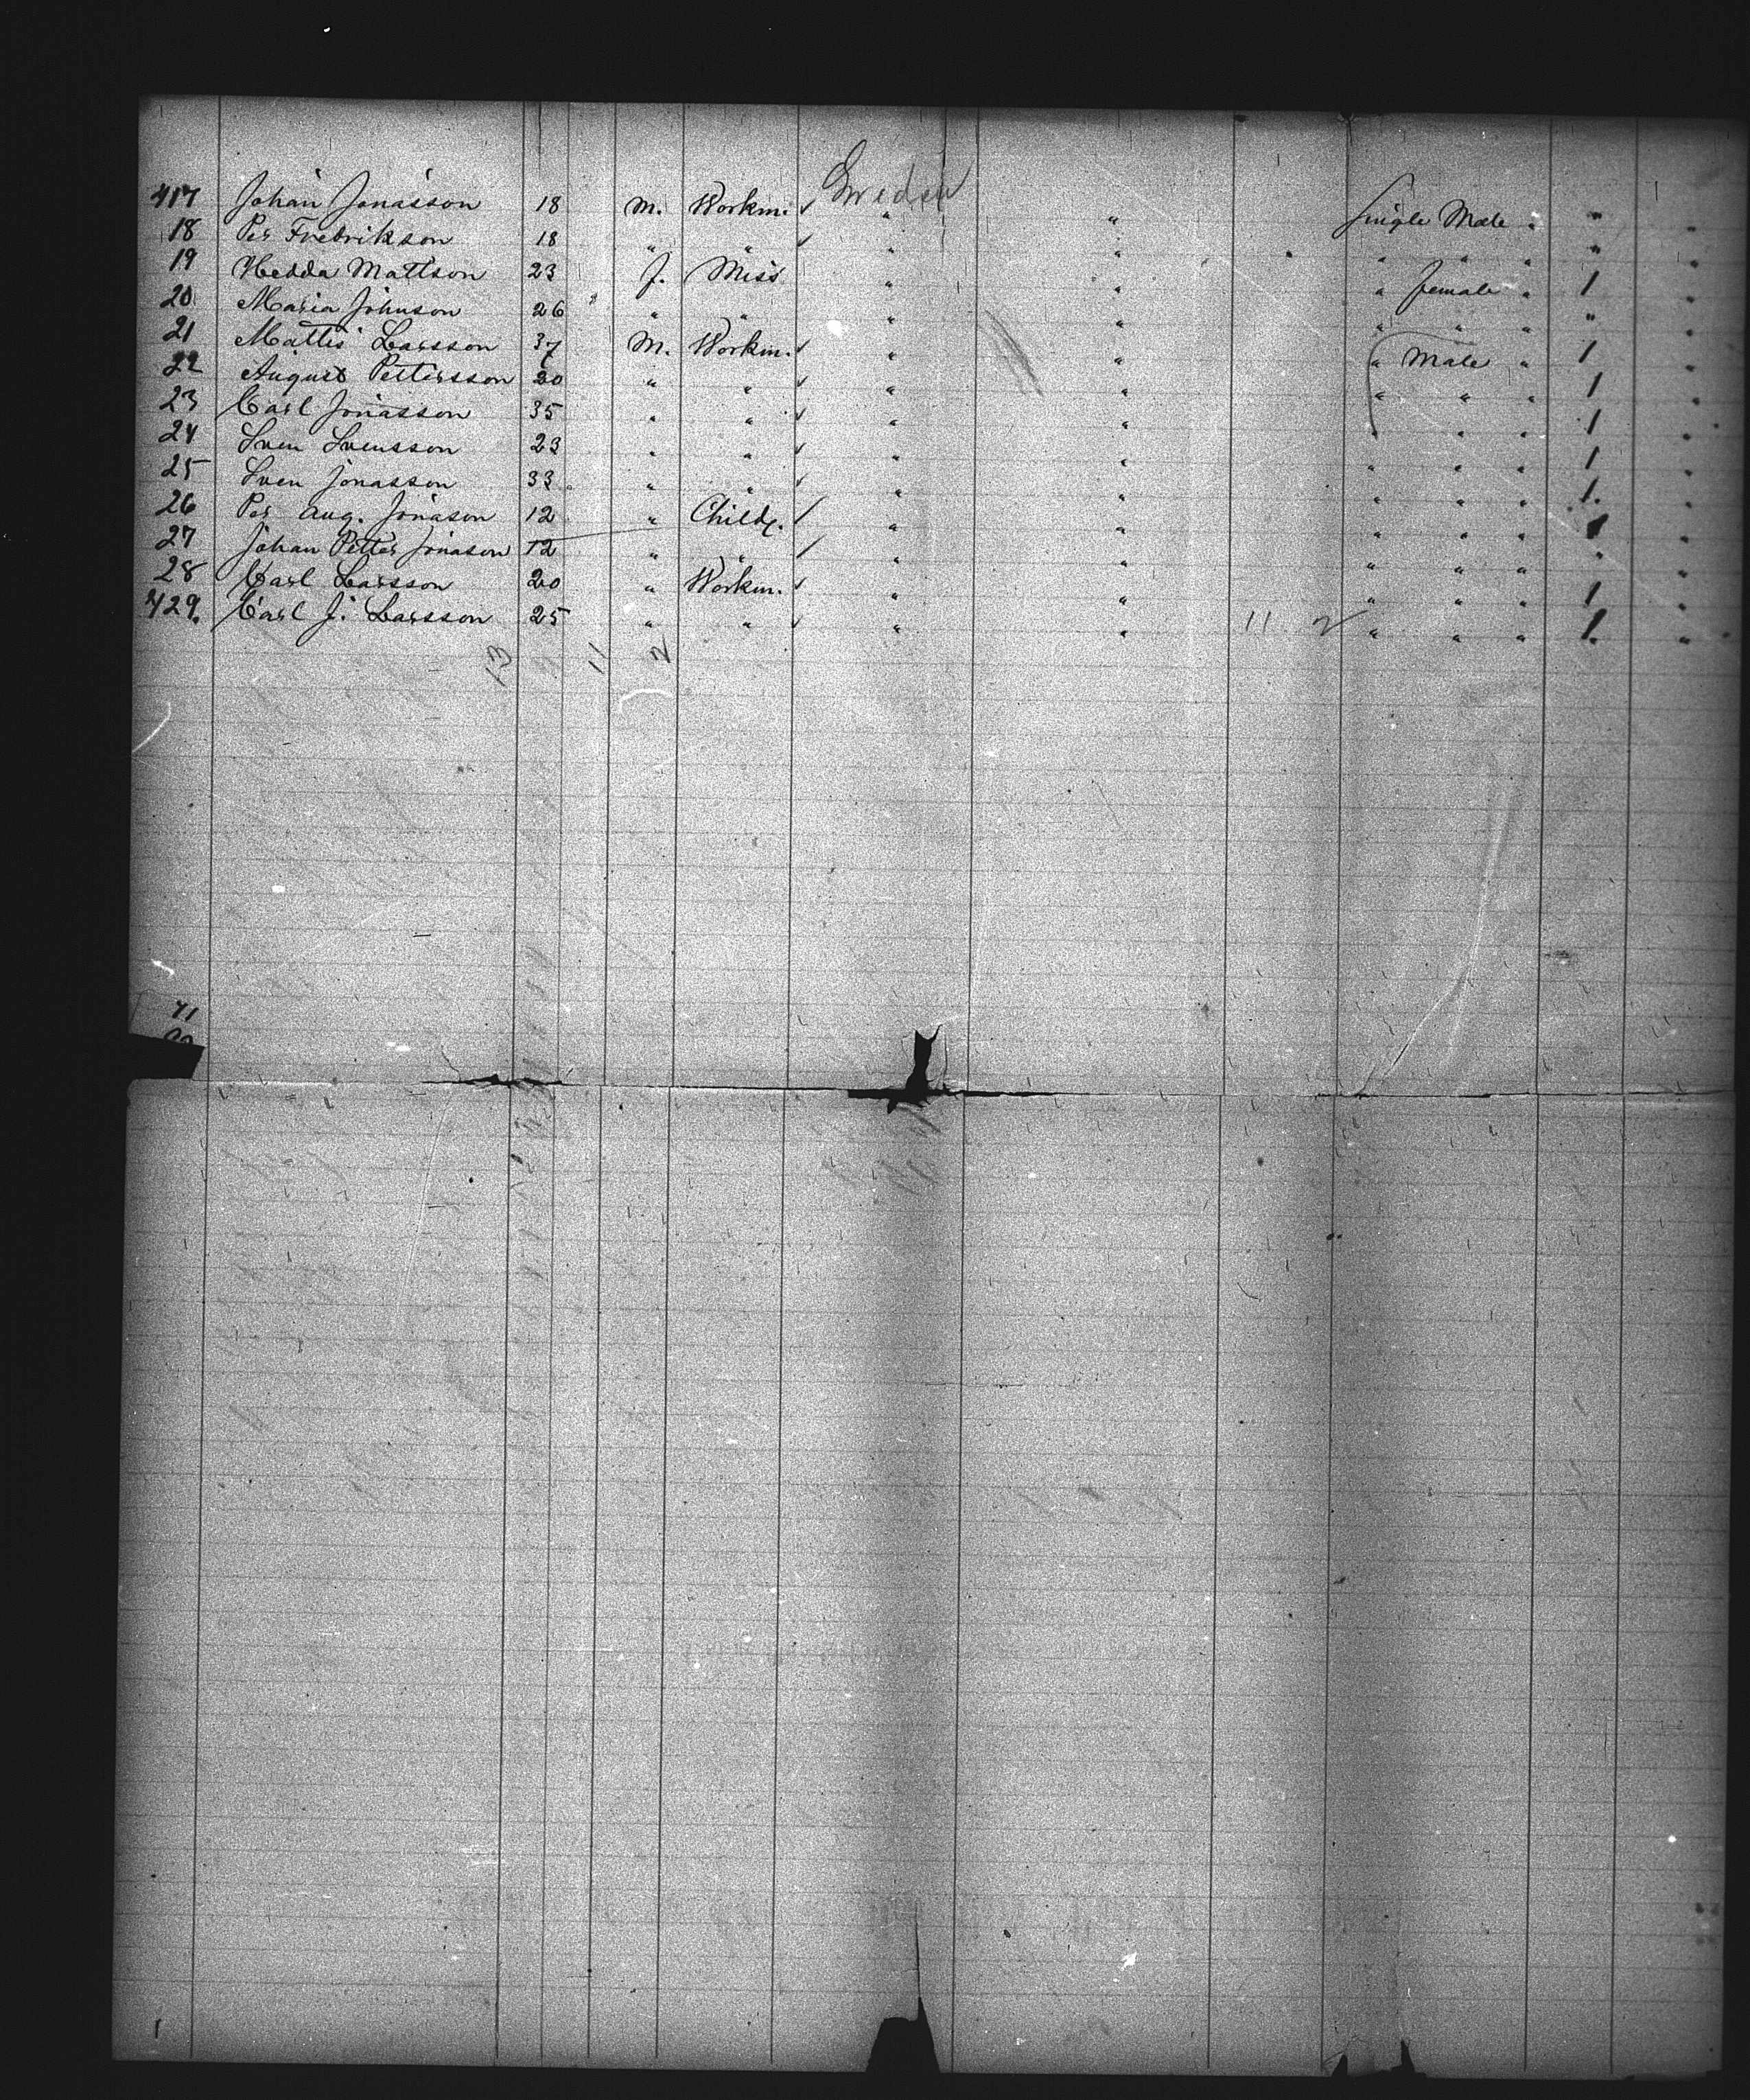 Sweden
417 Johan Jonasson 18 M. Workm. ✓ " " Single Male " " "
18 Per Fredrikson 18 " " ✓ " " " " " " "
19 Hedda Mattson 23 f. Miss " " " female " 1 "
20 Maria Johnson 26 " " " " " " " " "
21 Mattis Larsson 37 M. Workm. ✓ " " " Male " 1 "
22 August Pettersson 20 " " ✓ " " " " " 1 "
23 Carl Jonasson 35 " " ✓ " " " " " 1 "
24 Sven Svensson 23 " " ✓ " " " " " 1 "
25 Sven Jonasson 33 " " ✓ " " " " " 1. "
26 Per Aug. Jonason 12 " Child. / " " " " " 1 "
27 Johan Petter Jonason 12 " " / " " " " " " "
28 Carl Larsson 20 " Workm. ✓ " " " " " 1 "
429. Carl J. Larsson 25 " " ✓ " " 11 2 " " " 1. "
13 11 2